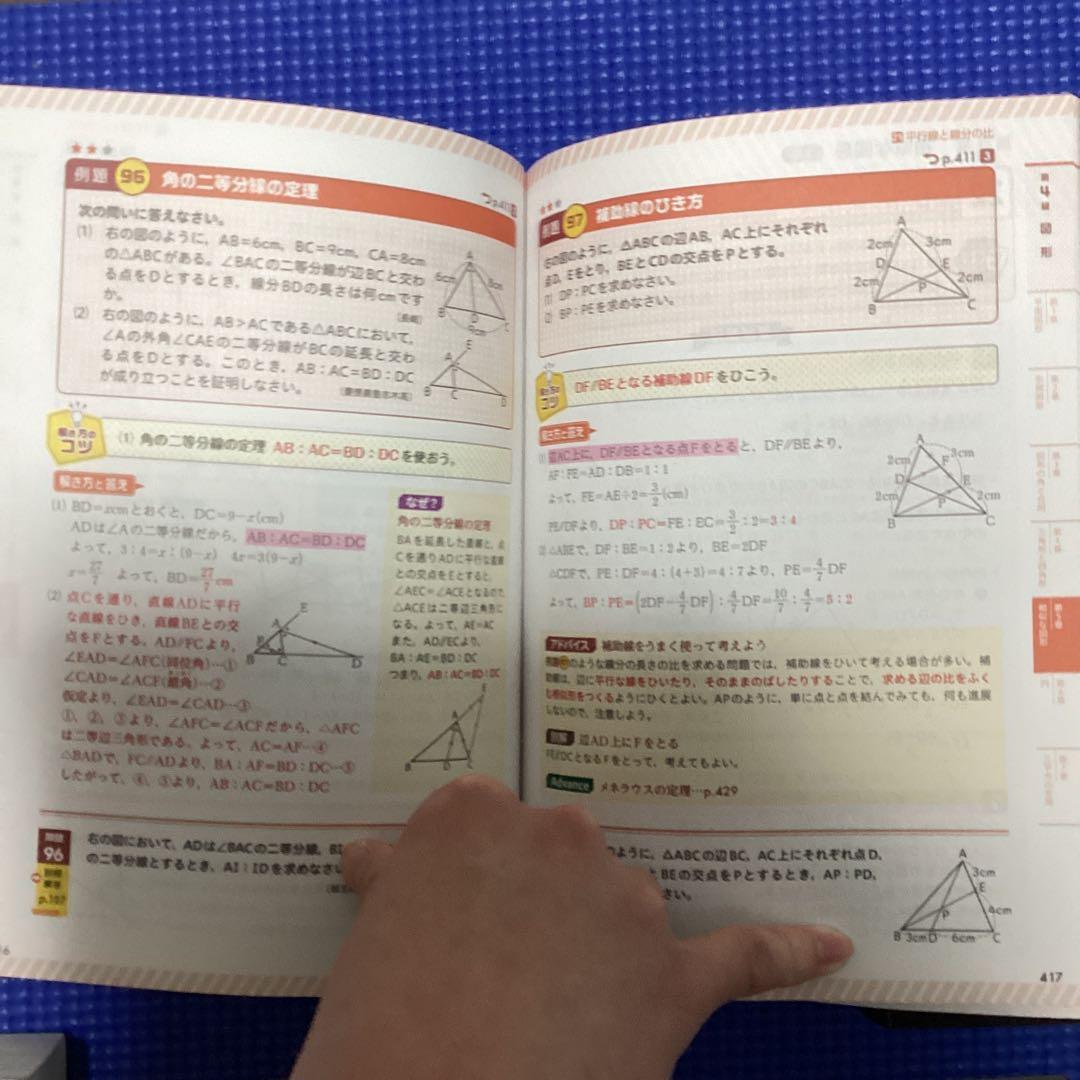 例題 96 角の二等分線の定理
次の問いに答えなさい。
(1) 右の図のように，AB=6cm，BC=9cm，CA=8cm
の△ABCがある。∠BACの二等分線が辺BCと交わ
る点をDとするとき，線分BDの長さは何cmです
か。
(2) 右の図のように，AB>ACである△ABCにおいて，
∠Aの外角∠CAEの二等分線がBCの延長と交わ
る点をDとする。このとき，AB：AC=BD：DC
が成り立つことを証明しなさい。
A
6cm
8cm
B
D
C
9cm
E
A
B
C
D
解き方の
コツ
(1) 角の二等分線の定理 AB：AC=BD：DCを使おう。
解き方と答え
(1) BD=xcmとおくと，DC=9-x(cm)
ADは∠Aの二等分線だから，AB：AC=BD：DC
よって，3：4=x：(9-x) 4x=3(9-x)
x=27/7 よって，BD=27/7cm
(2) 点Cを通り，直線ADに平行
な直線をひき，直線BEとの交
点をFとする。AD//FCより，
∠EAD=∠AFC(同位角)…①
∠CAD=∠ACF(錯角)…②
仮定より，∠EAD=∠CAD…③
①，②，③より，∠AFC=∠ACFだから，△AFC
は二等辺三角形である。よって，AC=AF…④
△BADで，FC//ADより，BA：AF=BD：DC…⑤
したがって，④，⑤より，AB：AC=BD：DC
E
A
B
C
D
なぜ？
角の二等分線の定理
BAを延長した直線と，点
Cを通りADに平行な直線
との交点をEとすると，
∠AEC=∠ACEとなるので，
△ACEは二等辺三角形に
なる。よって，AE=AC
また，AD//ECより，
BA：AE=BD：DC
つまり，AB：AC=BD：DC
E
A
B
D
C
96
p.107
右の図において，ADは∠BACの二等分線，BI
の二等分線とするとき，AI：IDを求めなさい
平行線と線分の比
p.411 3
例題 97 補助線のひき方
右の図のように，△ABCの辺AB，AC上にそれぞれ
点D，Eをとり，BEとCDの交点をPとする。
(1) DP：PCを求めなさい。
(2) BP：PEを求めなさい。
A
2cm
3cm
D
E
2cm
2cm
P
B
C
コツ
DF//BEとなる補助線DFをひこう。
解き方と答え
(1) 辺AC上に，DF//BEとなる点Fをとると，DF//BEより，
AF：FE=AD：DB=1：1
よって，FE=AE÷2=3/2(cm)
PE//DFより，DP：PC=FE：EC=3/2：2=3：4
(2) △ABEで，DF：BE=1：2より，BE=2DF
△CDFで，PE：DF=4：(4+3)=4：7より，PE=4/7DF
よって，BP：PE=(2DF-4/7DF)：4/7DF=10/7：4/7=5：2
A
2cm
F
3cm
D
E
2cm
2cm
P
B
C
アドバイス 補助線をうまく使って考えよう
例題97のような線分の長さの比を求める問題では，補助線をひいて考える場合が多い。補
助線は，辺に平行な線をひいたり，そのままのばしたりすることで，求める辺の比をふく
む相似形をつくるようにひくとよい。APのように，単に点と点を結んでみても，何も進展
しないので，注意しよう。
別解 辺AD上にFをとる
FE//DCとなるFをとって，考えてもよい。
Advance メネラウスの定理…p.429
ように，△ABCの辺BC，AC上にそれぞれ点D，
BEの交点をPとするとき，AP：PD，
さい。
A
3cm
E
4cm
P
B
3cm
D
6cm
C
417
第4編 図形
第5章
相似な図形